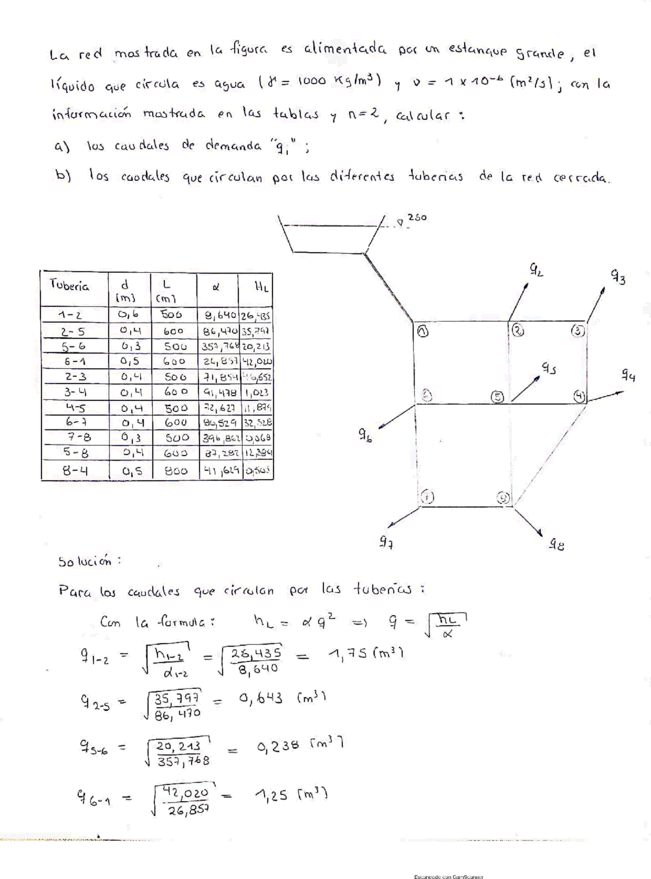 La red mostrada en la figura es alimentada por un estanque grande, el
líquido que circula es agua (γ = 1000 Kg/m³) y υ = 1 x 10⁻⁶ (m²/s); con la
información mostrada en las tablas y n=2, calcular:
a) los caudales de demanda "qi";
b) los caudales que circulan por las diferentes tuberias de la red cerrada.
250
Tuberia d (m) L (m) α HL
1-2 0,6 500 8,640 26,435
2-5 0,4 600 86,470 35,797
5-6 0,3 500 357,768 20,213
6-1 0,5 600 26,857 42,020
2-3 0,4 500 71,854
3-4 0,4 600 91,478 1,023
4-5 0,4 500 72,627
6-7 0,4 600 86,529 32,528
7-8 0,3 500 396,862 0,068
5-8 0,4 600 87,282
8-4 0,5 800 41,629 0,505
q2
q3
1 2 3
q5
q4
5 4
q6
q7
q8
Solución:
Para los caudales que circulan por las tuberías:
Con la formula: hL = α q² => q = √(hL/α)
q1-2 = √(h1-2/α1-2) = √(26,435/8,640) = 1,75 (m³)
q2-5 = √(35,797/86,470) = 0,643 (m³)
q5-6 = √(20,213/357,768) = 0,238 (m³)
q6-1 = √(42,020/26,857) = 1,25 (m³)
Escaneado con CamScanner